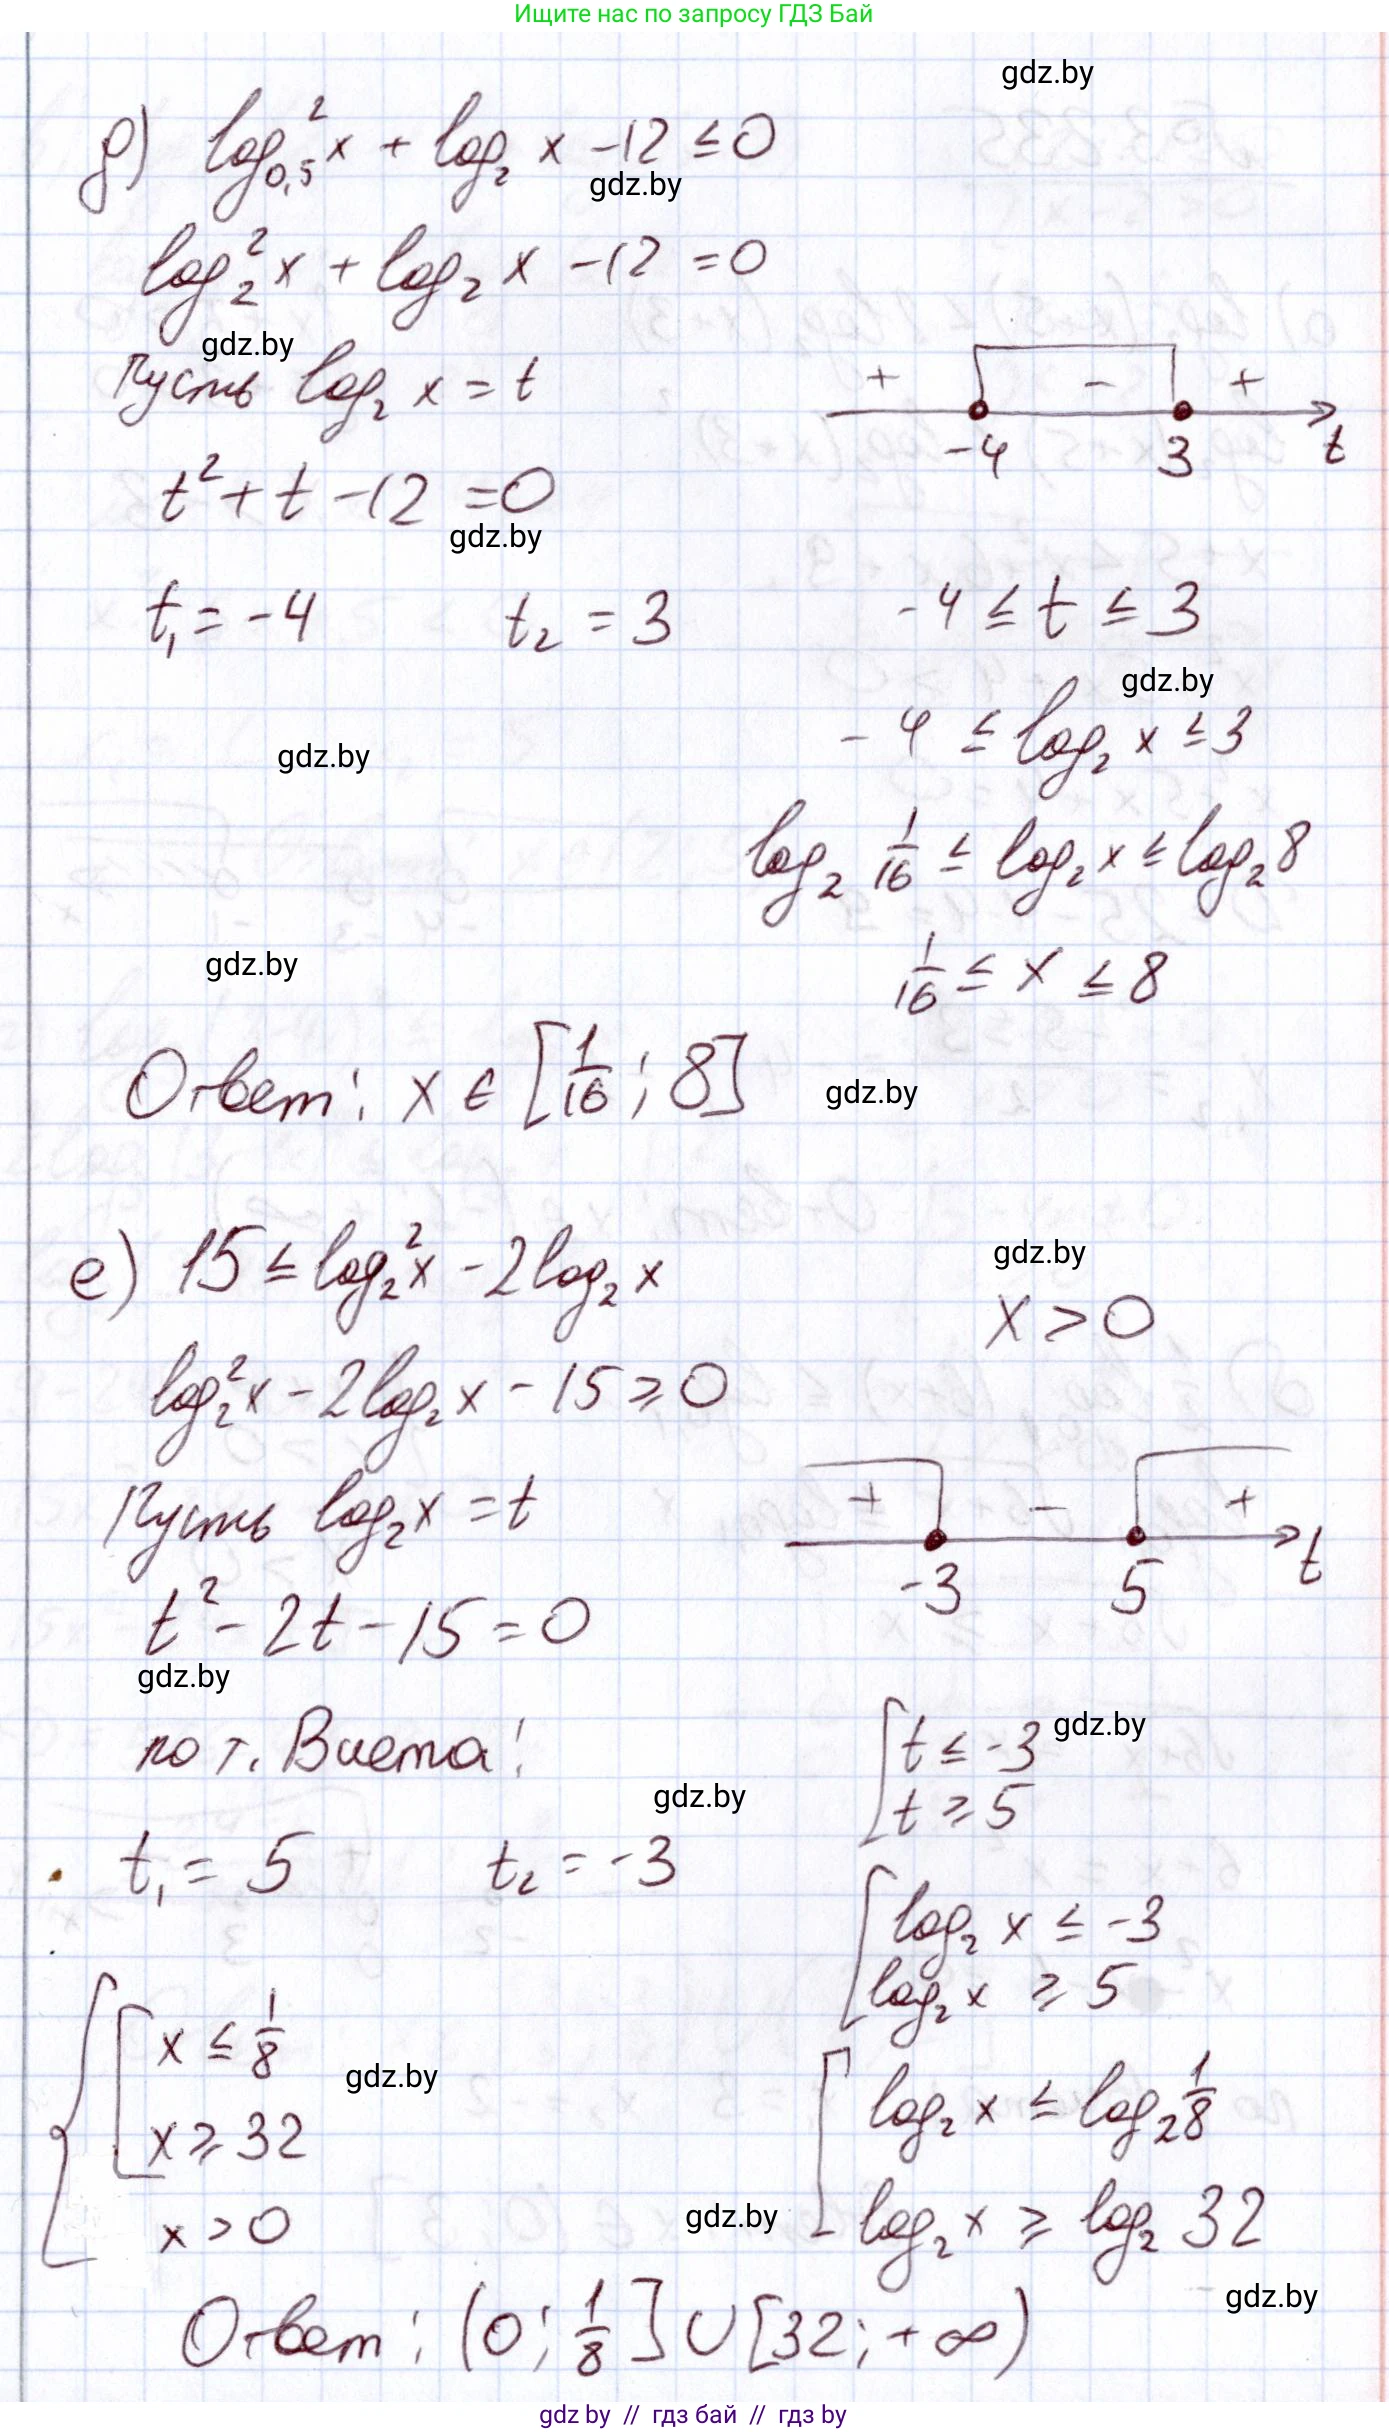 Ищите нас по запросу ГДЗ Бай
gdz.by
д) log²₀,₅ x + log₂ x - 12 ≤ 0
gdz.by
log²₂ x + log₂ x - 12 = 0
gdz.by
Пусть log₂ x = t
+ - +
-4 3 t
t² + t - 12 = 0
gdz.by
t₁ = -4 t₂ = 3
-4 ≤ t ≤ 3
gdz.by
-4 ≤ log₂ x ≤ 3
gdz.by
log₂ 1/16 ≤ log₂ x ≤ log₂ 8
gdz.by
1/16 ≤ x ≤ 8
Ответ: x ∈ [1/16; 8]
gdz.by
е) 15 ≤ log²₂ x - 2 log₂ x
gdz.by
x > 0
log²₂ x - 2 log₂ x - 15 ≥ 0
Пусть log₂ x = t
+ - +
-3 5 t
t² - 2t - 15 = 0
gdz.by
по т. Виета:
t₁ = 5 t₂ = -3
gdz.by
[ t ≤ -3
gdz.by
t ≥ 5
[ log₂ x ≤ -3
log₂ x ≥ 5
[ log₂ x ≤ log₂ 1/8
log₂ x ≥ log₂ 32
gdz.by
{ [ x ≤ 1/8
gdz.by
x ≥ 32
x > 0
gdz.by
Ответ: (0; 1/8] ∪ [32; +∞)
gdz.by // гдз бай // гдз by